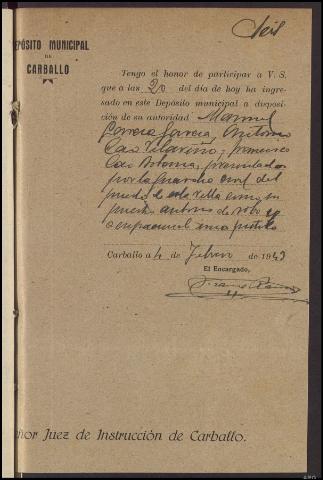 Seis
DEPÓSITO MUNICIPAL
DE
CARBALLO
Tengo el honor de participar a V. S.
que a las 20 del día de hoy ha ingre-
sado en este Depósito municipal a disposi-
ción de su autoridad Manuel
García García, Antonio
Cao Vilariño, y Francisco
Cao, presentados
por la Guardia civil del
puesto de esta Villa como su
puestos autores de robo y
una pistola
Carballo a 4 de Febrero de 1943
El Encargado,
Señor Juez de Instrucción de Carballo.